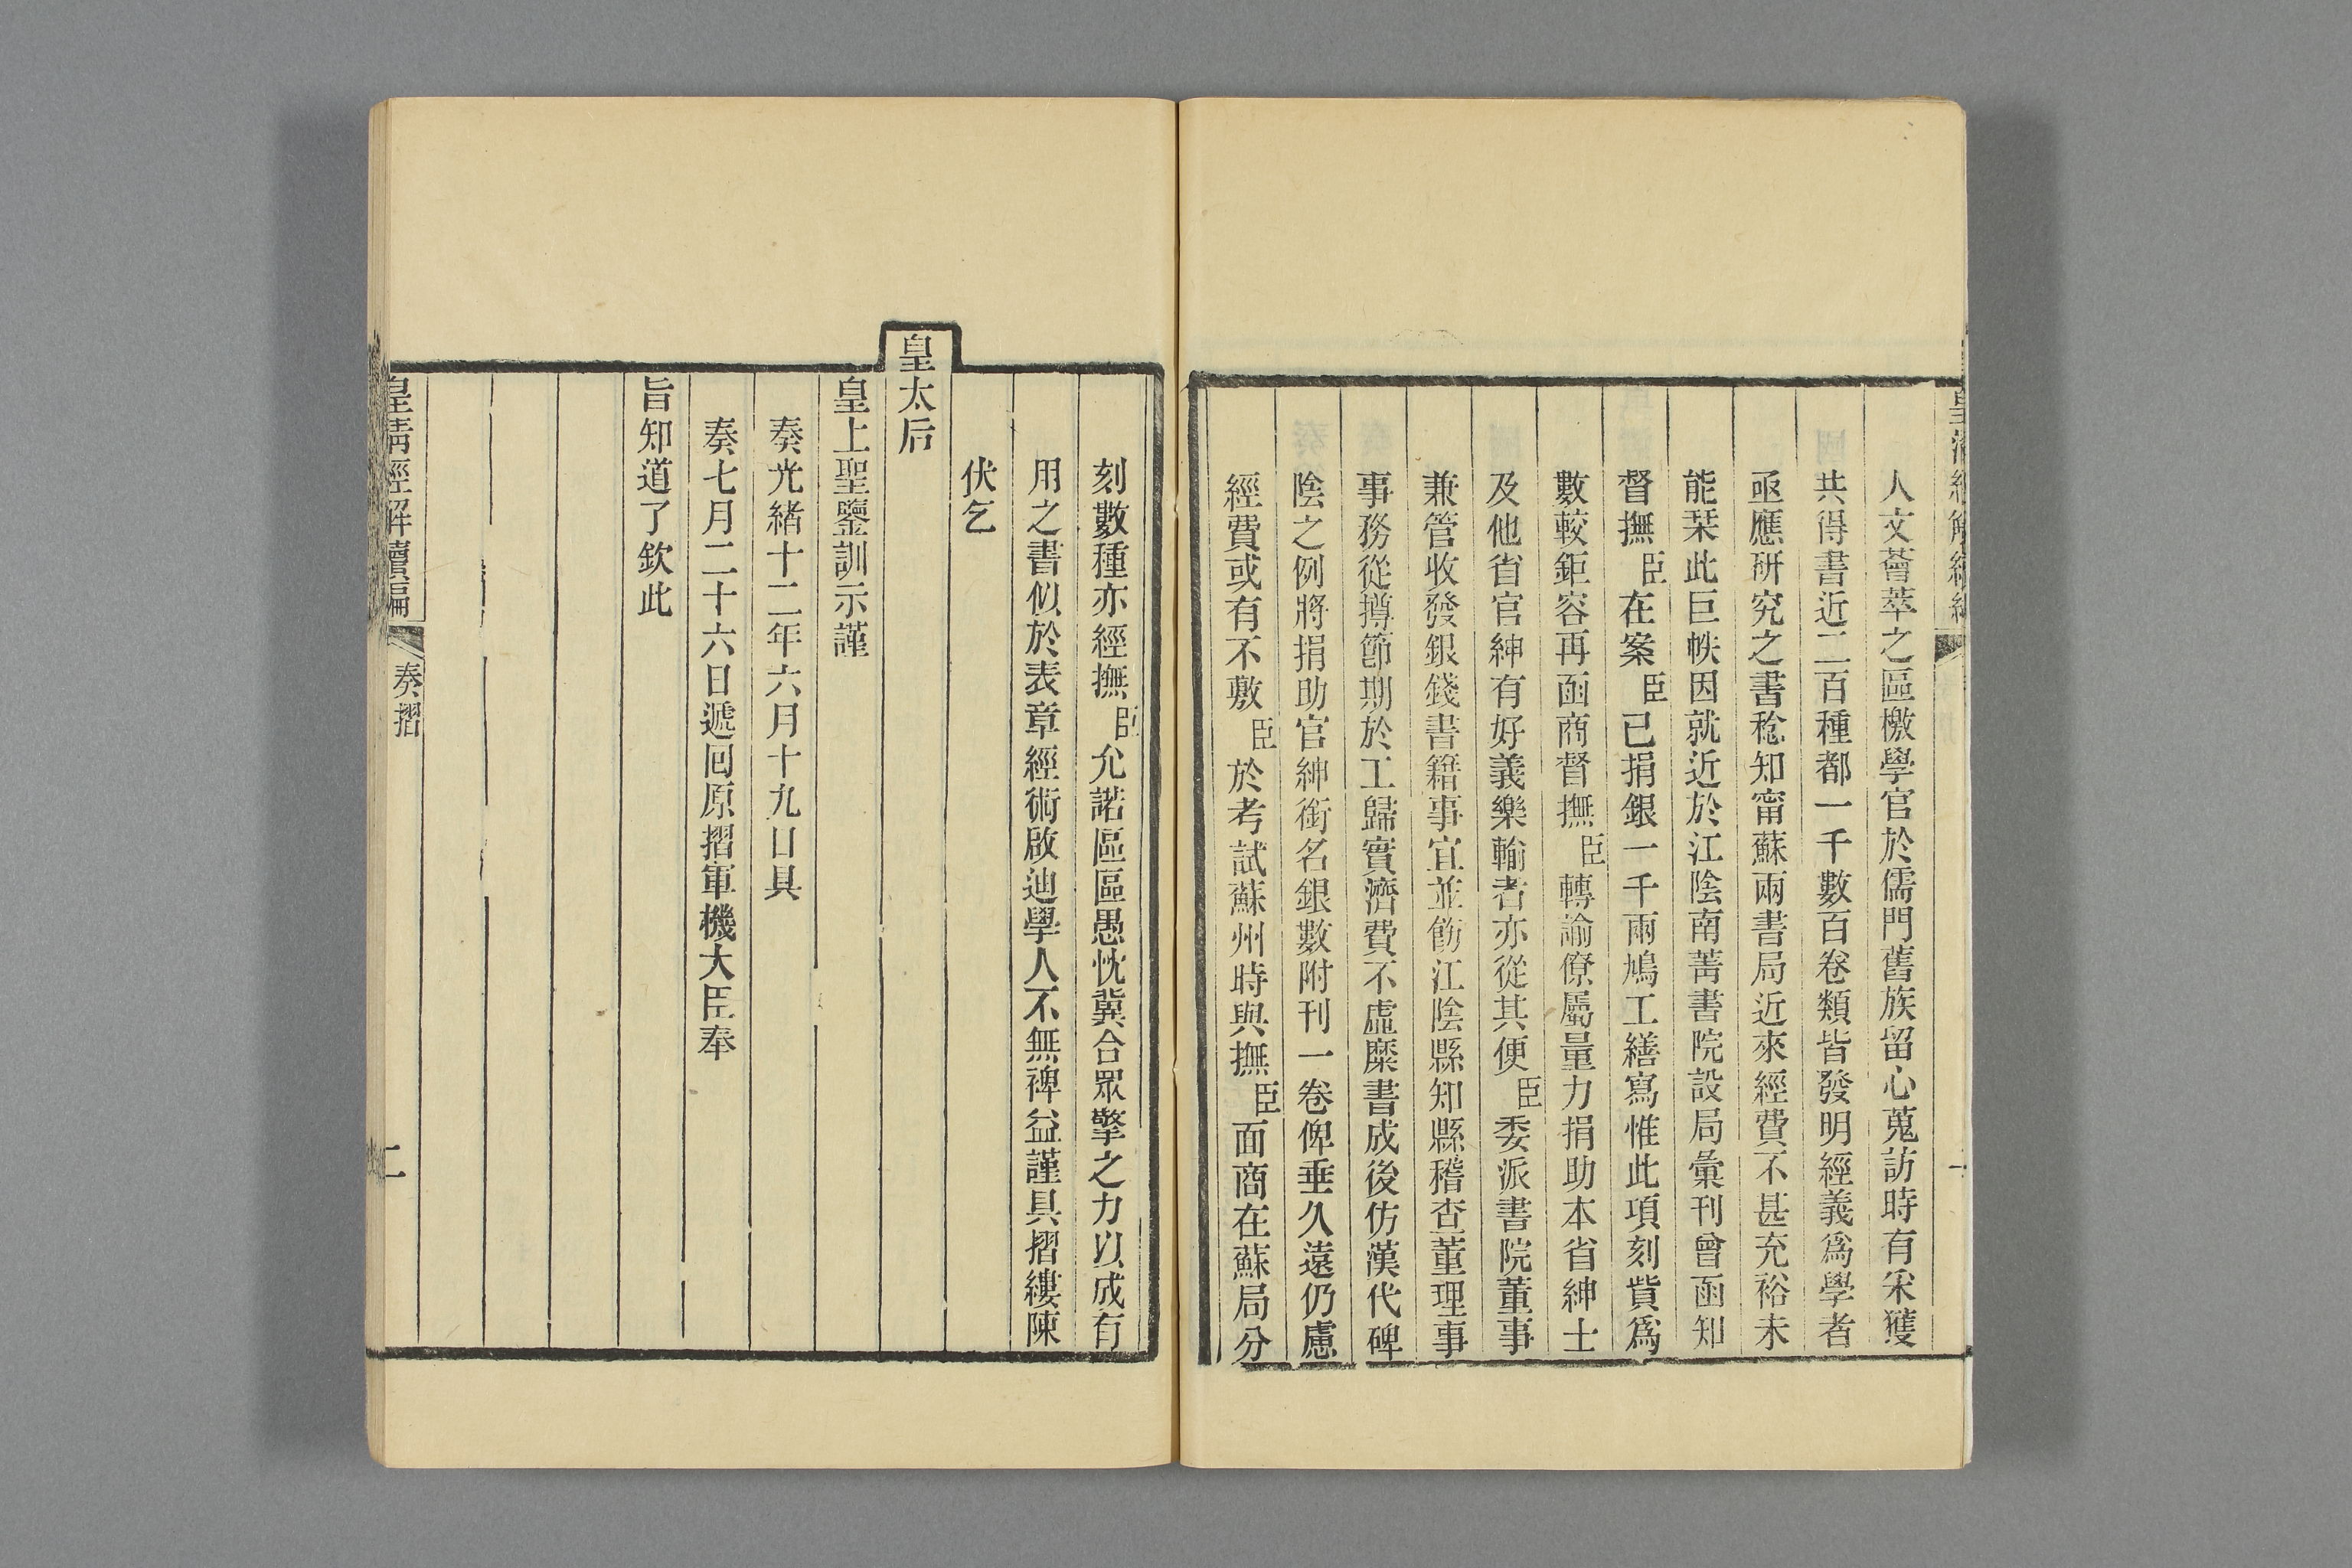 人文薈萃之區檄學官於儒門舊族留心蒐訪時有采獲
共得書近二百種都一千數百卷類皆發明經義爲學者
亟應研究之書稔知甯蘇兩書局近來經費不甚充裕未
能栞此巨帙因就近於江陰南菁書院設局彙刊曾函知
督撫臣在案臣已捐銀一千兩鳩工繕寫惟此項刻貲爲
數較鉅容再函商督撫臣轉諭僚屬量力捐助本省紳士
及他省官紳有好義樂輸者亦從其便臣委派書院董事
兼管收發銀錢書籍事宜並飭江陰縣知縣稽查董理事
事務從撙節期於工歸實濟費不虛糜書成後仿漢代碑
陰之例將捐助官紳銜名銀數附刊一卷俾垂久遠仍慮
經費或有不敷臣於考試蘇州時與撫臣面商在蘇局分
刻數種亦經撫臣允諾區區愚忱冀合眾擎之力以成有
用之書似於表章經術啟迪學人不無裨益謹具摺縷陳
伏乞
皇太后
皇上聖鑒訓示謹
奏光緒十二年六月十九日具
奏七月二十六日遞回原摺軍機大臣奉
旨知道了欽此
皇清經解續編
奏摺
二